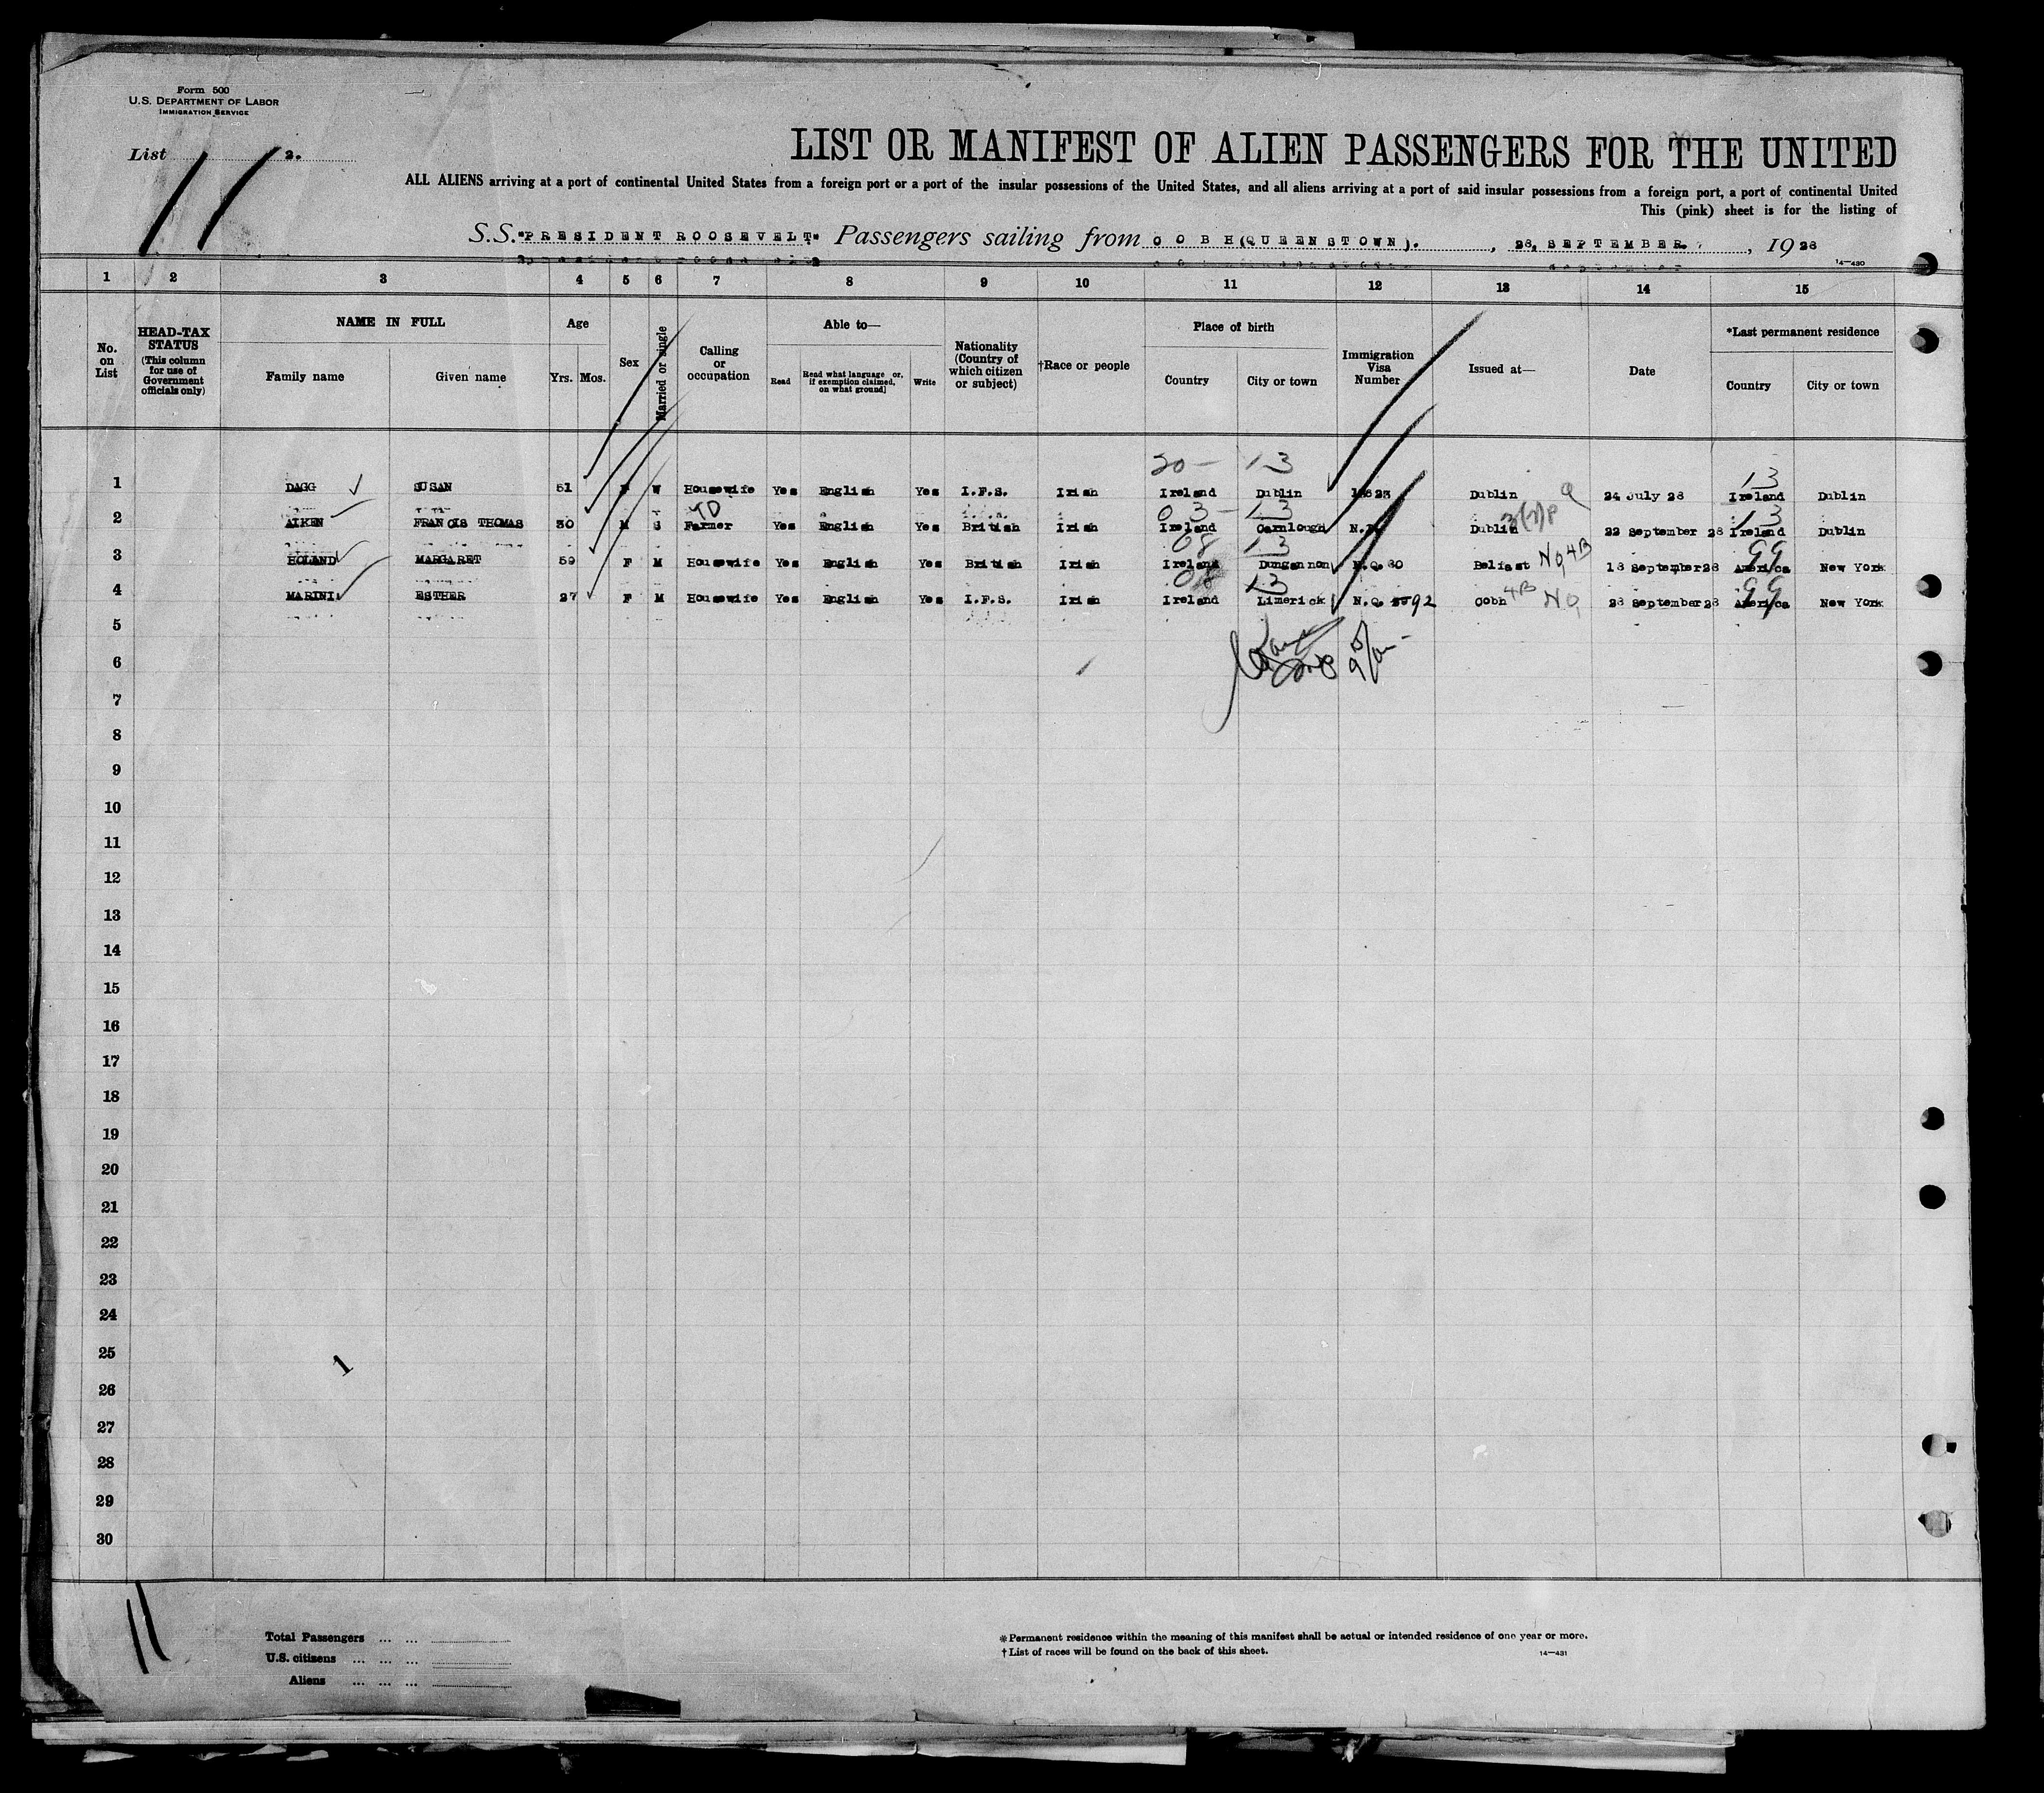 Form 500
U.S. DEPARTMENT OF LABOR
IMMIGRATION SERVICE
List 2.
11
LIST OR MANIFEST OF ALIEN PASSENGERS FOR THE UNITED
ALL ALIENS arriving at a port of continental United States from a foreign port or a port of the insular possessions of the United States, and all aliens arriving at a port of said insular possessions from a foreign port, a port of continental United
This (pink) sheet is for the listing of
S.S. "PRESIDENT ROOSEVELT" Passengers sailing from COBH (QUEENSTOWN). , 28, SEPTEMBER. , 1928
14—430
1 2 3 4 5 6 7 8 9 10 11 12 13 14 15
No. on List
HEAD-TAX STATUS (This column for use of Government officials only)
NAME IN FULL
Family name Given name
Age
Yrs. Mos.
Sex
Married or single
Calling or occupation
Able to—
Read
Read what language or, if exemption claimed, on what ground]
Write
Nationality (Country of which citizen or subject)
†Race or people
Place of birth
Country City or town
Immigration Visa Number
Issued at—
Date
*Last permanent residence
Country City or town
20— 13 13
1 DAGG SUSAN 51 F W Housewife Yes English Yes I.F.S. Irish Ireland Dublin Dublin 24 July 28 Ireland Dublin
03— 13 13
2 AIKEN FRANCIS THOMAS 30 M S Farmer Yes English Yes British Irish Ireland Carnlough Dublin 22 September 28 Ireland Dublin
08 13 99
3 HOLAND MARGARET 59 F M Housewife Yes English Yes British Irish Ireland Dungannon N.Q. 80 Belfast No 4B 18 September 28 America New York
13 99
4 MARINI ESTHER 27 F M Housewife Yes English Yes I.F.S. Irish Ireland Limerick N.Q. 92 Cobh 4B No 28 September 28 America New York
5
6
7
8
9
10
11
12
13
14
15
16
17
18
19
20
21
22
23
24
25
1
26
27
28
29
30
11
Total Passengers ... ...
U.S. citizens ... ... ...
Aliens ... ... ...
*Permanent residence within the meaning of this manifest shall be actual or intended residence of one year or more.
†List of races will be found on the back of this sheet.
14—431